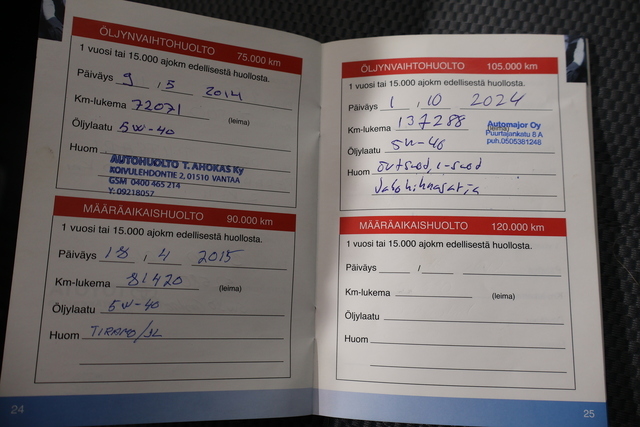 ÖLJYNVAIHTOHUOLTO 75.000 km
1 vuosi tai 15.000 ajokm edellisestä huollosta.
Päiväys 9 , 5 2014
Km-lukema 72071 (leima)
Öljylaatu 5W-40
Huom
AUTOHUOLTO T. AHOKAS Ky
KOIVULEHDONTIE 2, 01510 VANTAA
GSM 0400 465 214
Y: 09218057
MÄÄRÄAIKAISHUOLTO 90.000 km
1 vuosi tai 15.000 ajokm edellisestä huollosta.
Päiväys 18 , 4 2015
Km-lukema 81420 (leima)
Öljylaatu 5W-40
Huom
24
ÖLJYNVAIHTOHUOLTO 105.000 km
1 vuosi tai 15.000 ajokm edellisestä huollosta.
Päiväys 1 , 10 2024
Km-lukema 137288 (leima)
Automajor Oy
Puurtajankatu 8 A
puh.0505381248
Öljylaatu 5W-40
Huom
Jakohihnasarja
MÄÄRÄAIKAISHUOLTO 120.000 km
1 vuosi tai 15.000 ajokm edellisestä huollosta.
Päiväys /
Km-lukema (leima)
Öljylaatu
Huom
25